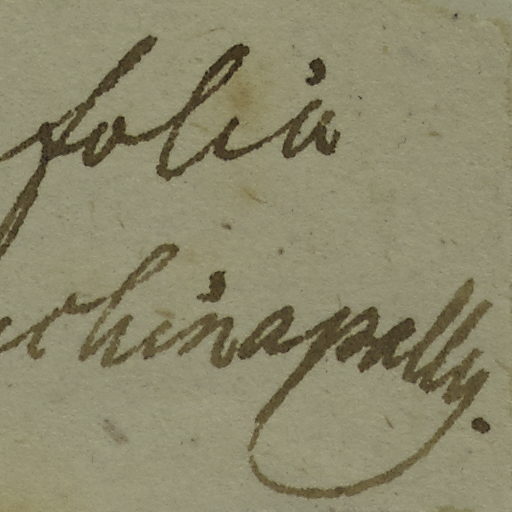 folia
ichinapally.